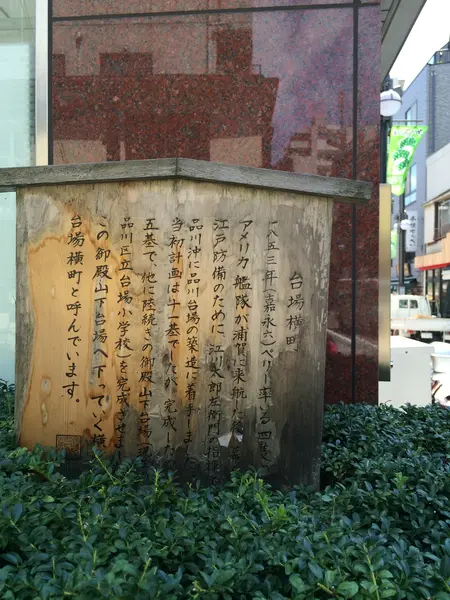 台場横町
一八五三年(嘉永六)ペリー率いる四隻
アメリカ艦隊が浦賀に来航した後
江戸防備のために、江川太郎左衛門の指揮
品川沖に品川台場の築造に着手しました
当初計画は十一基でしたが、完成した
五基で、他に陸続きの御殿山下台場
品川区立台場小学校)を完成させまし
この御殿山下台場へ下っていく横
台場横町と呼んでいます。